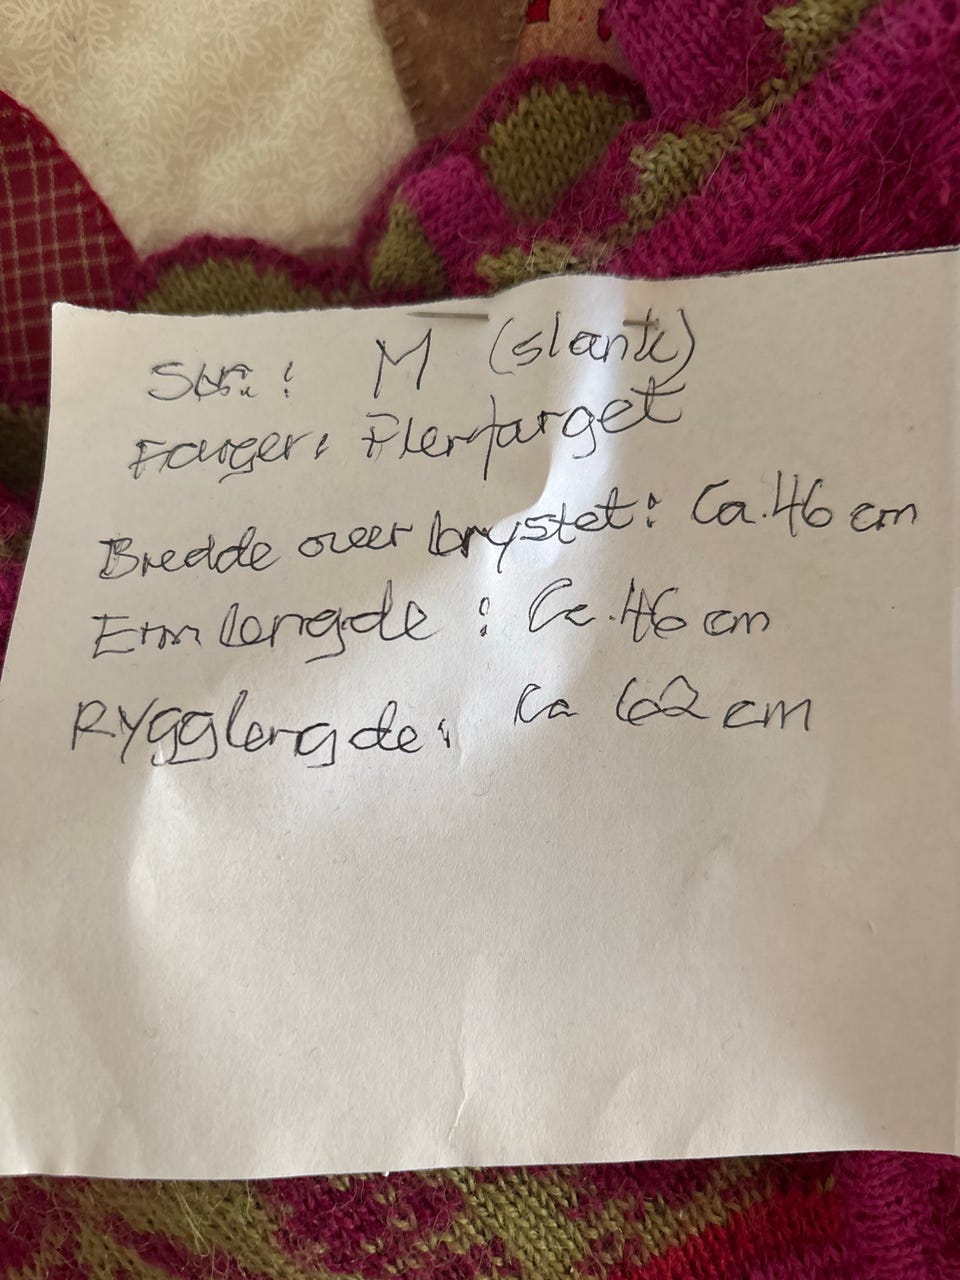 Str.: M (slank)
Farger: Flerfarget
Bredde over brystet: Ca. 46 cm
Erm lengde: Ca. 46 cm
Rygglengde: Ca 62 cm